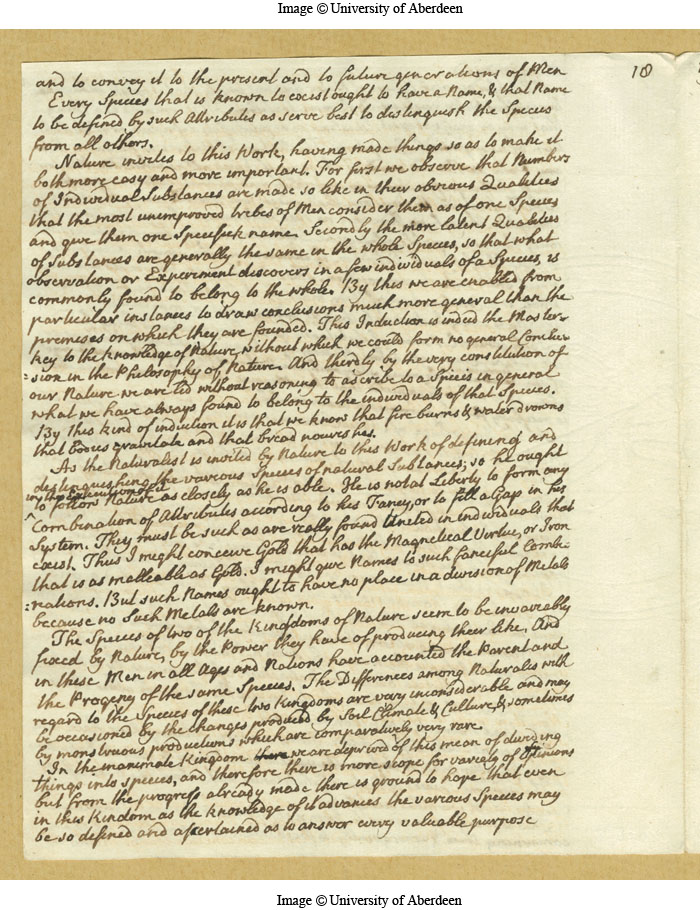 Image © University of Aberdeen
18
and to convey it to the present and to future generations of Men
Every Species that is known to exist ought to have a Name, & that Name
to be defined by such Attributes as serve best to distinguish the Species
from all others.
Nature invites to this Work, having made things so as to make it
both more easy and more important. For first we observe that Numbers
of Individual Substances are made so like in their obvious Qualities
that the most unimproved tribes of Men consider them as of one Species
and give them one Specifick name. Secondly the more latent Qualities
of Substances are generally the same in the whole Species, so that what
observation or Experiment discovers in a few individuals of a Species, is
commonly found to belong to the whole. By this we are enabled from
particular instances to draw conclusions much more general than the
premises on which they are founded. This Induction is indeed the Master-
key to the knowledge of Nature, without which we could form no general Conclu-
:sion in the Philosophy of Nature. And thirdly by the very constitution of
our Nature we are led without reasoning to ascribe to a Species in general
what we have always found to belong to the individuals of that Species.
By this kind of induction it is that we know that fire burns & water drowns
that bodies gravitate and that bread nourishes.
As the Naturalist is invited by Nature to this Work of defining and
distinguishing the various Species of natural Substances; so he ought
in the Execution of it
to follow Nature as closely as he is able. He is not at Liberty to form any
Combination of Attributes according to his Fancy, or to fill a Gap in his
System. They must be such as are really found United in individuals that
exist. Thus I might conceive Gold that has the Magnetical Virtue, or Iron
that is as malleable as Gold. I might give Names to such fanciful Combi-
:nations. But such Names ought to have no place in a division of Metals
because no such Metals are known.
The Species of two of the Kingdoms of Nature seem to be invariably
fixed by Nature, by the Power they have of producing their like. And
in these Men in all Ages and Nations have accounted the Parent and
the Progeny of the same Species. The Differences among Naturalists with
regard to the Species of these two Kingdoms are very inconsiderable and may
be occasioned by the changes produced by Soil Climate & Culture, & sometimes
by monstruous productions which are comparatively very rare.
In the inanimate Kingdom there we are deprived of this mean of dividing
things into species, and therefore there is more scope for variety of Opinions
but from the progress already made there is ground to hope that even
in this Kindom as the knowledge of it advances the various Species may
be so defined and ascertained as to answer every valuable purpose
Image © University of Aberdeen